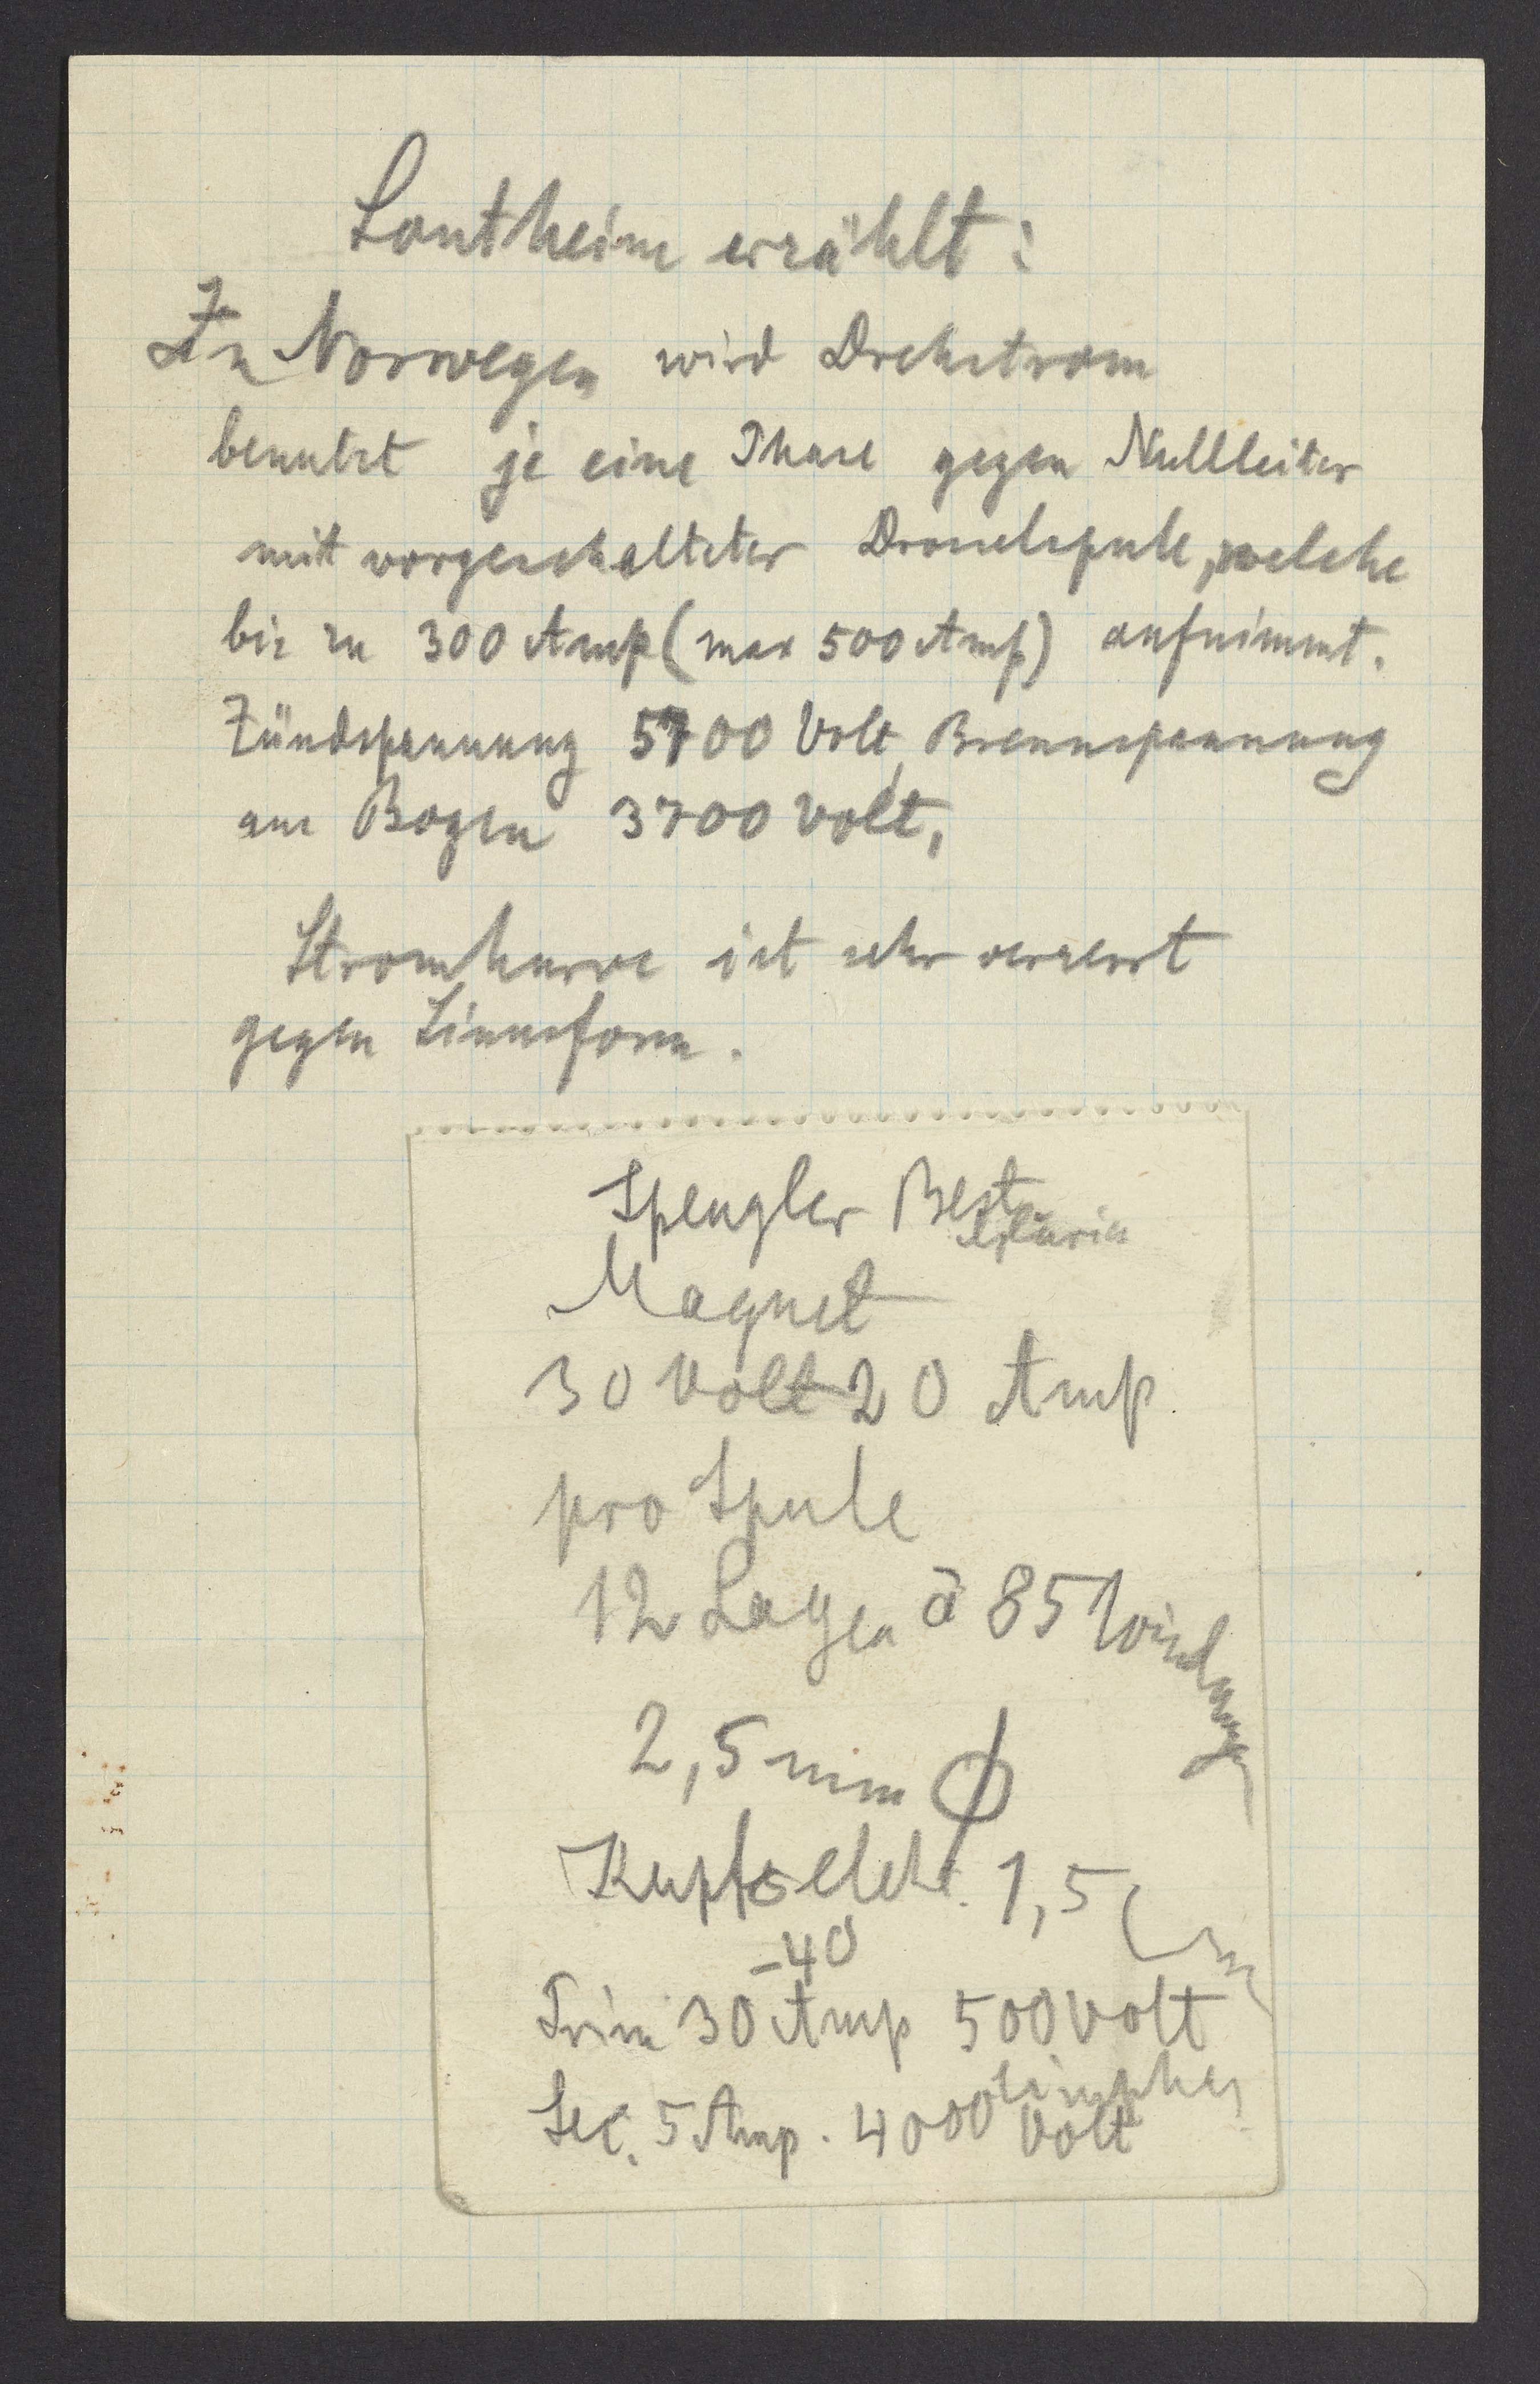 Lontheim erzählt:
In Norwegen wird Drehstrom
benutzt je eine Phase gegen Nullleiter
mit vorgeschalteter Drosselspule, welche
bis zu 300 Amp (max 500 Amp) aufnimmt.
Zündspannung 5700 Volt, Brennspannung
am Bogen 3700 Volt,
Stromkurve ist sehr verzerrt
gegen Sinusform.
Spengler Best
Magnet
30 Volt 20 Amp
pro Spule
12 Lagen à 85 Windungen
2,5 mm ϕ
1,5
-40
Prim 30 Amp 500 Volt
Sec. 5 Amp. 4000 Volt